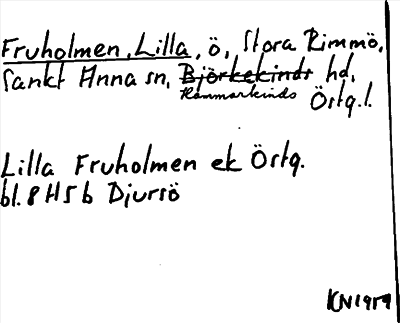 Fruholmen, Lilla, ö, Stora Rimmö,
Sankt Anna sn, Björkekinds hd,
Hammarkinds Östg.l.
Lilla Fruholmen ek Östg.
bl. 8 H 5 b Djursö
KN 1959